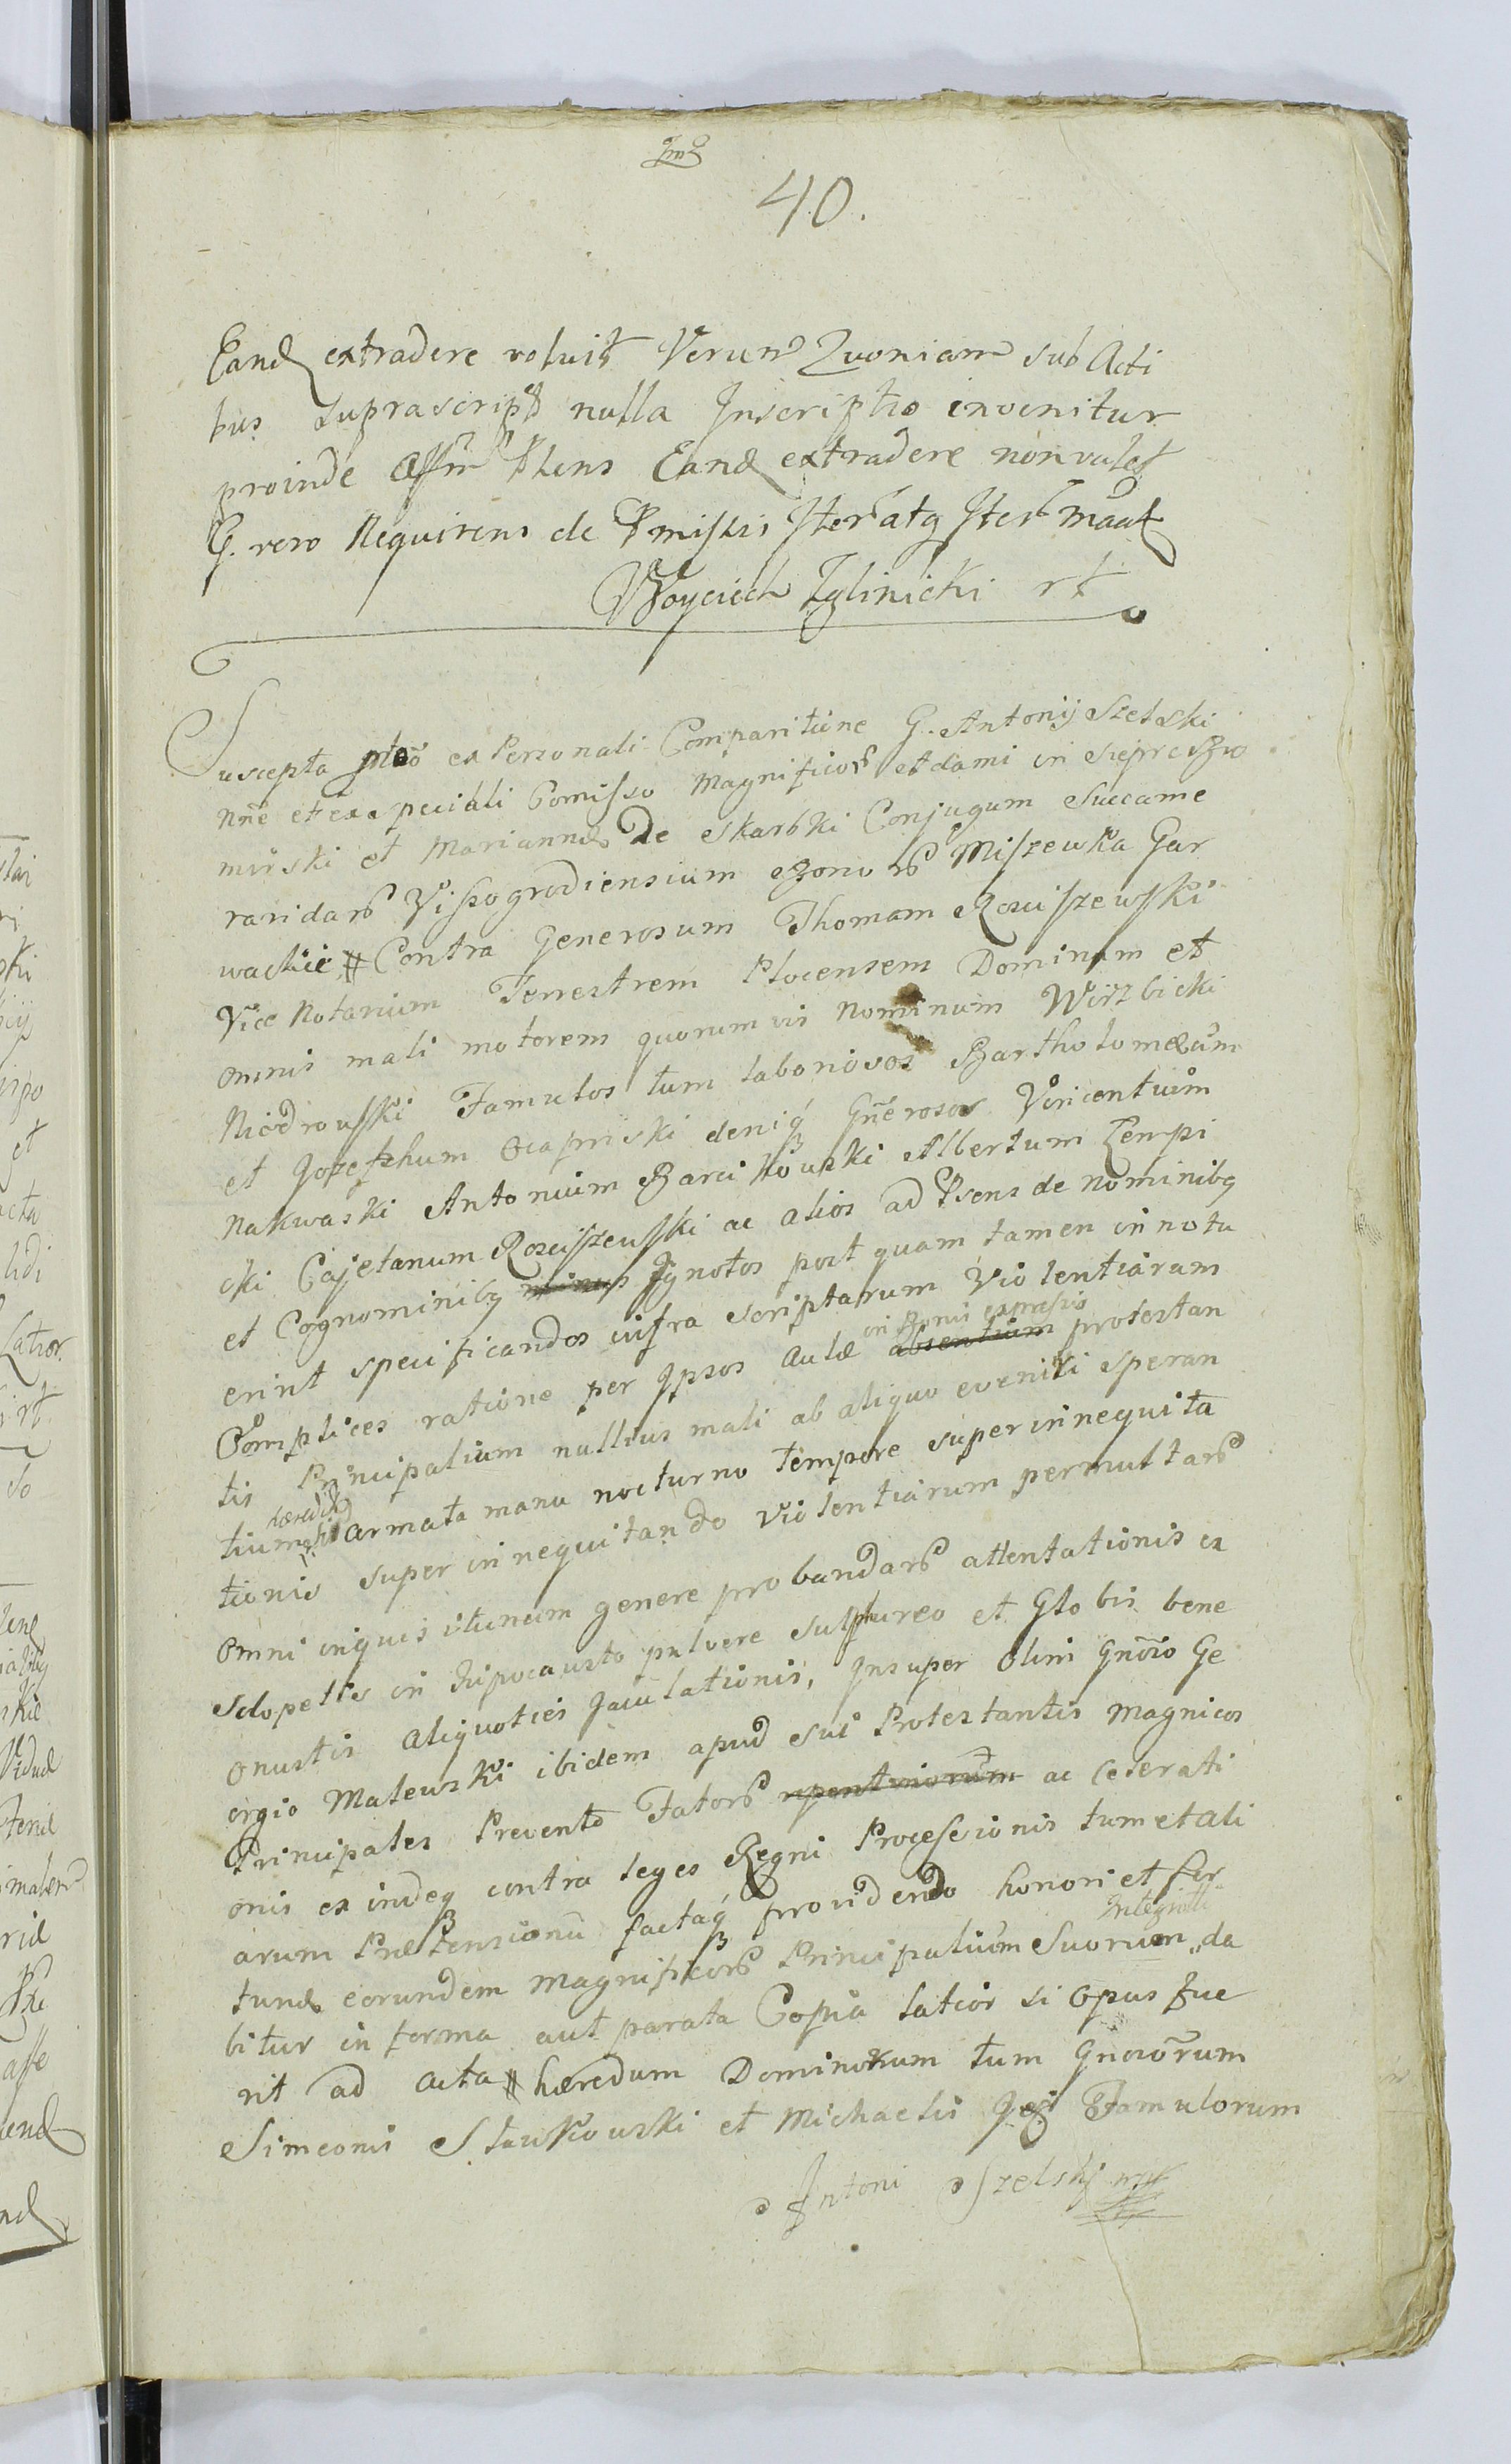 40.
Eand extradere voluit Verum Quoniam sub Acti
bus suprascript nulla Inscriptio invenitur
proinde Offm Ptens Eand extradere non valet
G. vero Requirens de Pmissis Iter atq Iter maat
Woyciech Zglinicki rt
Suscepta ptao ex Personali Comparitione G. Antonij Szelski
Nne et ex speciali Comisso Magnificor et dami in Sieprc Szio
mirski et Mariannæ De Skarbki Conjugum Succame
raridar Vissogrodiensium Bonor Miszewka Gar
wackie # Contra Generosum Thomam Rosciszewski
Vice Notarium Terrestrem Plocensem Dominum et
omnis mali motorem quorumvis Nominum Wirzbicki
Niedrowski Famulos tum laboriosos Bartholomæum
et Josephum Ocapinski deniq Gnerosos Vincentium
Nakwaski Antonium Barcikowski Albertum Zempi
cki Cajetanum Rosciszewski ac alios ad Psens de nominibq
et Cognominibq minus Ignotos post quam tamen innotu
erint specificandos infra scriptarum Violentiarum
Complices ratione per Ipsos Aulæ absentium in Bonis expressis protestan
tis Principalium nullius mali ab aliquo eveniri speran
tium hæredit armata manu nocturno tempore superinnequita
tionis superinnequitando violentiarum permultar
omni inquisitionum genere probandar attentationis ex
Sclopettis in hipocausto pulvere sulphureo et Globis bene
onustis aliquoties Jaculationis, Insuper olim Gnoso Ge
orgio Mateuski ibidem apud sui Protestantis Magnicos
Principales Prevento Fator ac ceterati
onis ex indeq contra leges Regni Processionis tum et ali
arum Prætensionu factaq providendo honori et for
tunæ eorundem Magnificor Principalium Suorum Integriter da
bitur in forma aut parata Copia latior si opus fue
rit ad acta # hæredum Dominorum tum Gnosorum
Simeonis Stawkowski et Michaelis Famulorum
Antoni Szelskj mp